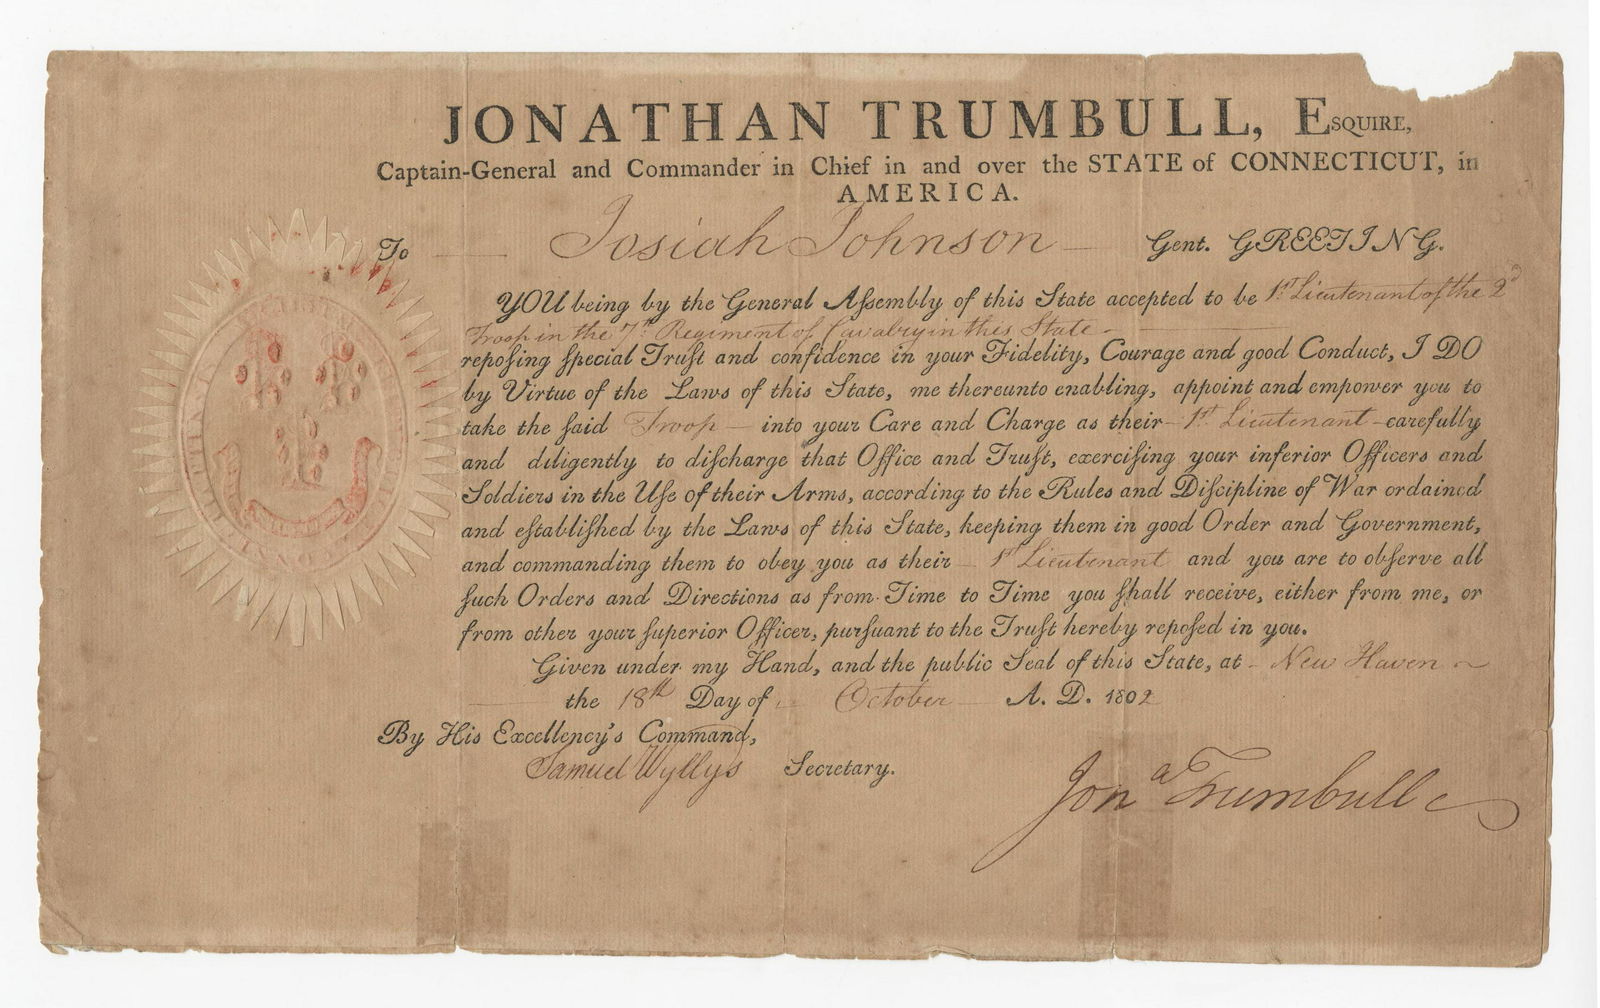 JONATHAN TRUMBULL, ESQUIRE,
Captain-General and Commander in Chief in and over the STATE of CONNECTICUT, in
AMERICA.
To Josiah Johnson Gent. GREETING.
YOU being by the General Aſsembly of this State accepted to be 1st Lieutenant of the 2d
Troop in the 7th Regiment of Cavalry in this State
repoſing ſpecial Truſt and confidence in your Fidelity, Courage and good Conduct, I DO
by Virtue of the Laws of this State, me thereunto enabling, appoint and empower you to
take the ſaid Troop into your Care and Charge as their 1st Lieutenant carefully
and diligently to diſcharge that Office and Truſt, exerciſing your inferior Officers and
Soldiers in the Uſe of their Arms, according to the Rules and Diſcipline of War ordained
and eſtabliſhed by the Laws of this State, keeping them in good Order and Government,
and commanding them to obey you as their 1st Lieutenant and you are to obſerve all
ſuch Orders and Directions as from Time to Time you ſhall receive, either from me, or
from other your ſuperior Officer, purſuant to the Truſt hereby repoſed in you.
Given under my Hand, and the public Seal of this State, at New Haven
the 18th Day of October A. D. 1802
By His Excellency's Command,
Samuel Wyllys Secretary.
Jona Trumbull